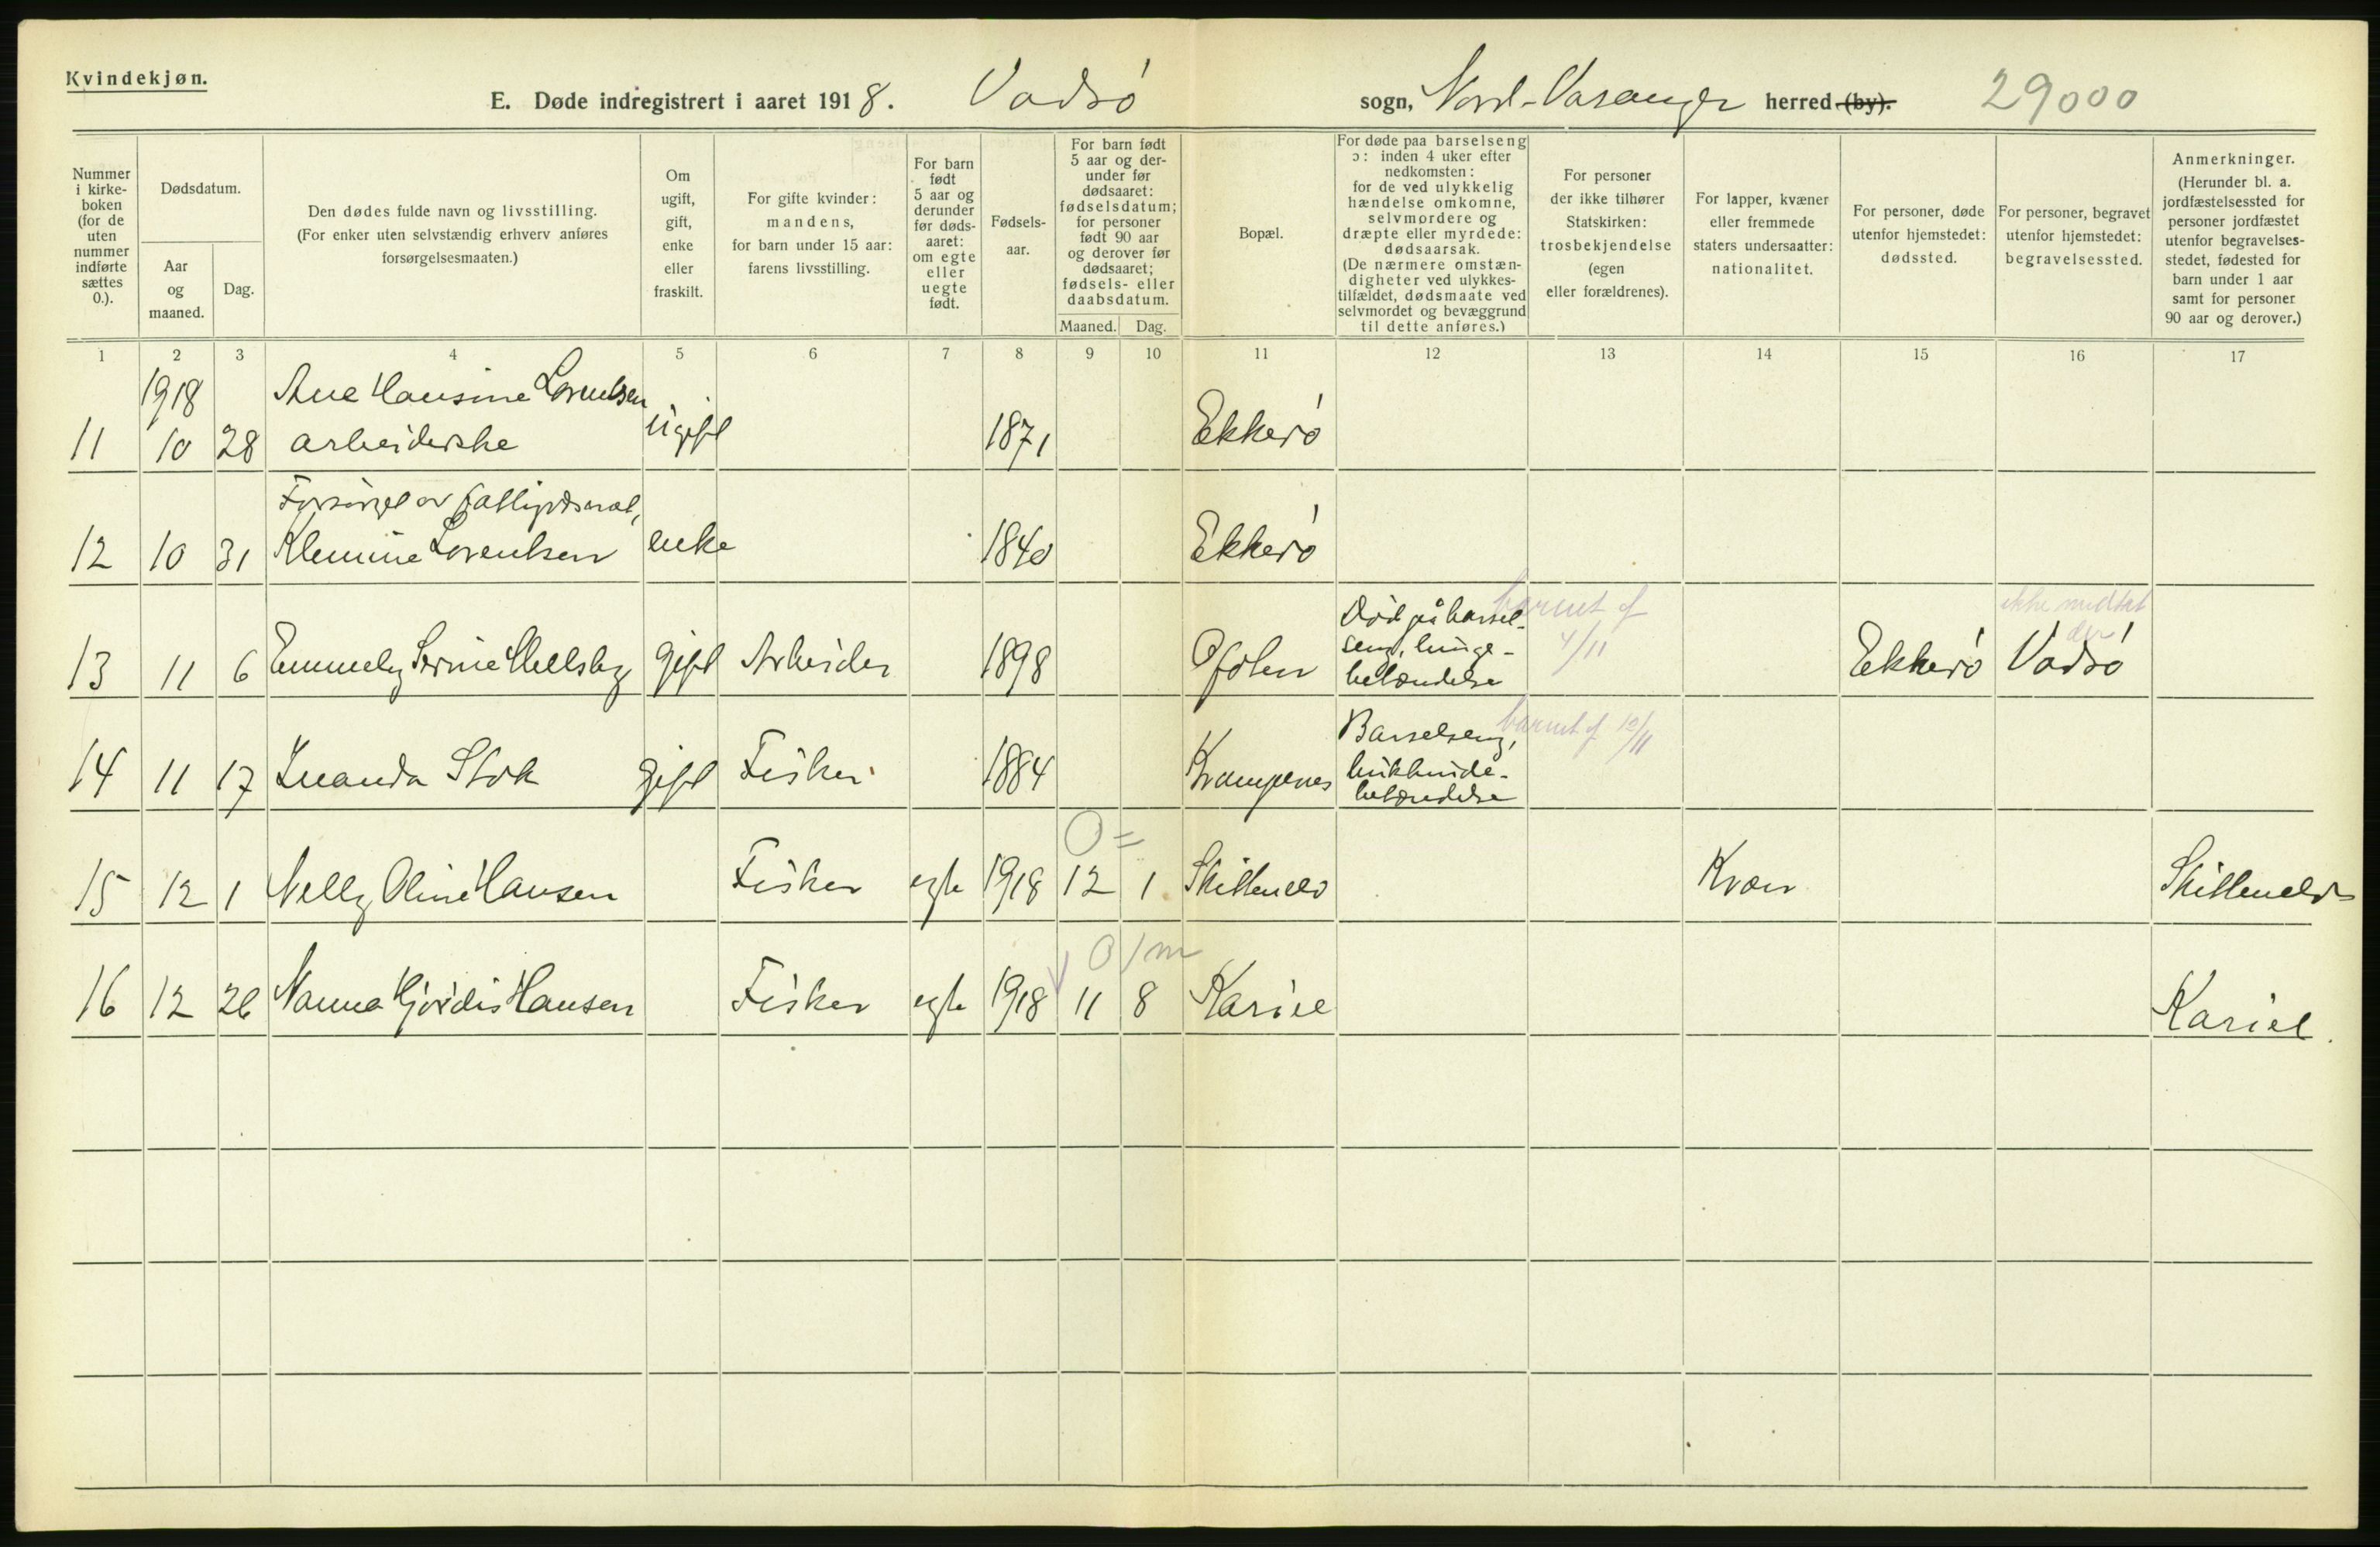 Kvindekjøn.
E. Døde indregistrert i aaret 1918. Vadsö sogn, Nord-Varanger herred (by). 29000
Nummer i kirke- boken (for de uten nummer indførte sættes 0.).
Dødsdatum.
Aar og maaned.
Dag.
Den dødes fulde navn og livsstilling.
(For enker uten selvstændig erhverv anføres
forsørgelsesmaaten.)
Om ugift, gift, enke eller fraskilt.
For gifte kvinder: mandens, for barn under 15 aar: farens livsstilling.
For barn født 5 aar og derunder før døds- aaret: om egte eller uegte født.
Fødsels- aar.
For barn født 5 aar og der- under før dødsaaret: fødselsdatum; for personer født 90 aar og derover før dødsaaret; fødsels- eller daabsdatum.
Maaned. Dag.
Bopæl.
For døde paa barselseng ɔ: inden 4 uker efter nedkomsten: for de ved ulykkelig hændelse omkomne, selvmordere og dræpte eller myrdede: dødsaarsak. (De nærmere omstæn- digheter ved ulykkes- tilfældet, dødsmaate ved selvmordet og bevæggrund til dette anføres.)
For personer der ikke tilhører Statskirken: trosbekjendelse (egen eller forældrenes).
For lapper, kvæner eller fremmede staters undersaatter: nationalitet.
For personer, døde utenfor hjemstedet: dødssted.
For personer, begravet utenfor hjemstedet: begravelsessted.
Anmerkninger. (Herunder bl. a. jordfæstelsessted for personer jordfæstet utenfor begravelses- stedet, fødested for barn under 1 aar samt for personer 90 aar og derover.)
1 2 3 4 5 6 7 8 9 10 11 12 13 14 15 16 17
1918 Ane Hansine Lorentsen
11 10 28 arbeiderske ugift 1871 Ekkerö
Forsörget av fattigvæsenet,
12 10 31 Klemine Lorentsen enke 1840 Ekkerö
Död på barsel- barnet f ikke medtat
seng, lunge- 4/11 der
13 11 6 Emmely Serine Hellsby gift Arbeider 1898 Ekkerö Vadsö
betændelse
Barselseng, barnet f 12/11
14 11 17 Stok gift Fisker 1884 Krampenes bukhinde-
betændelse
0 =
15 12 1 Nelly Oline Hansen Fisker egte 1918 12 1 Skittenelv Kvæn Skittenelv
0/m
16 12 26 Nanna Hjördis Hansen Fisker egte 1918 11 8 Kariel Kariel.